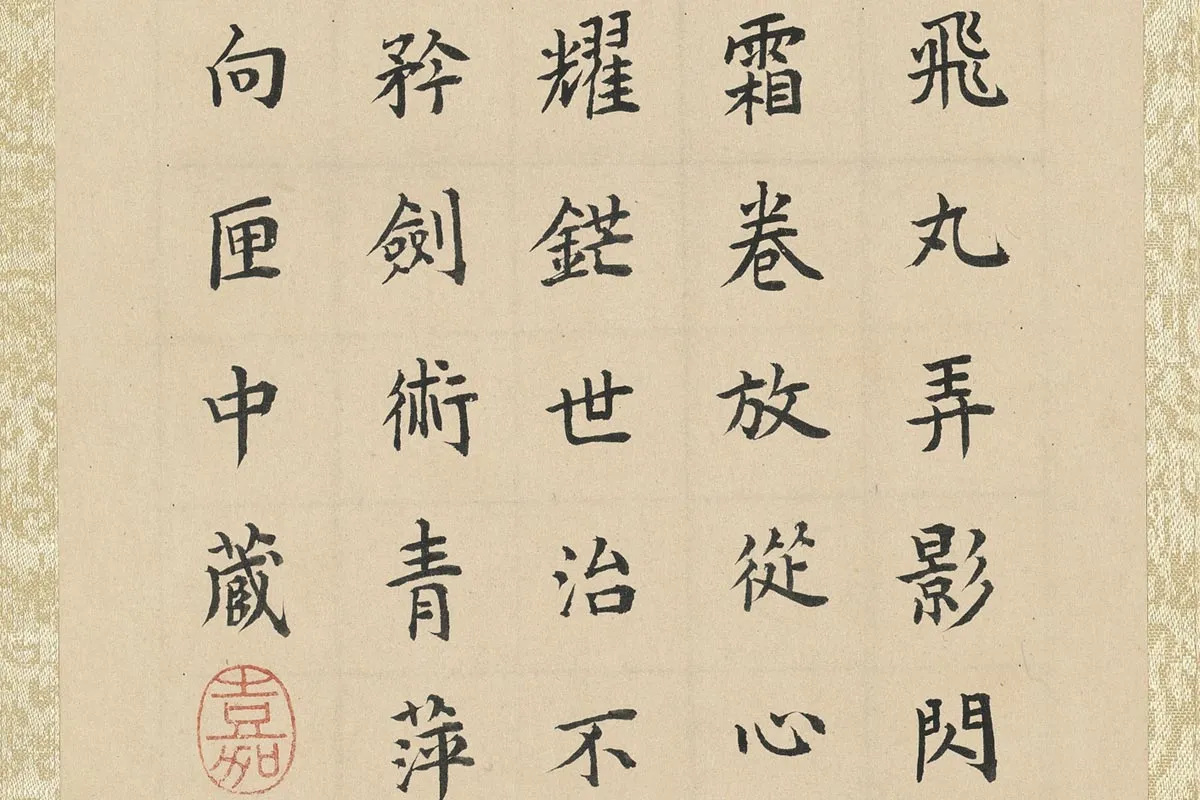 飛丸弄影閃
霜卷放從心
耀鋩世治不
矜劍術青萍
向匣中藏
嘉